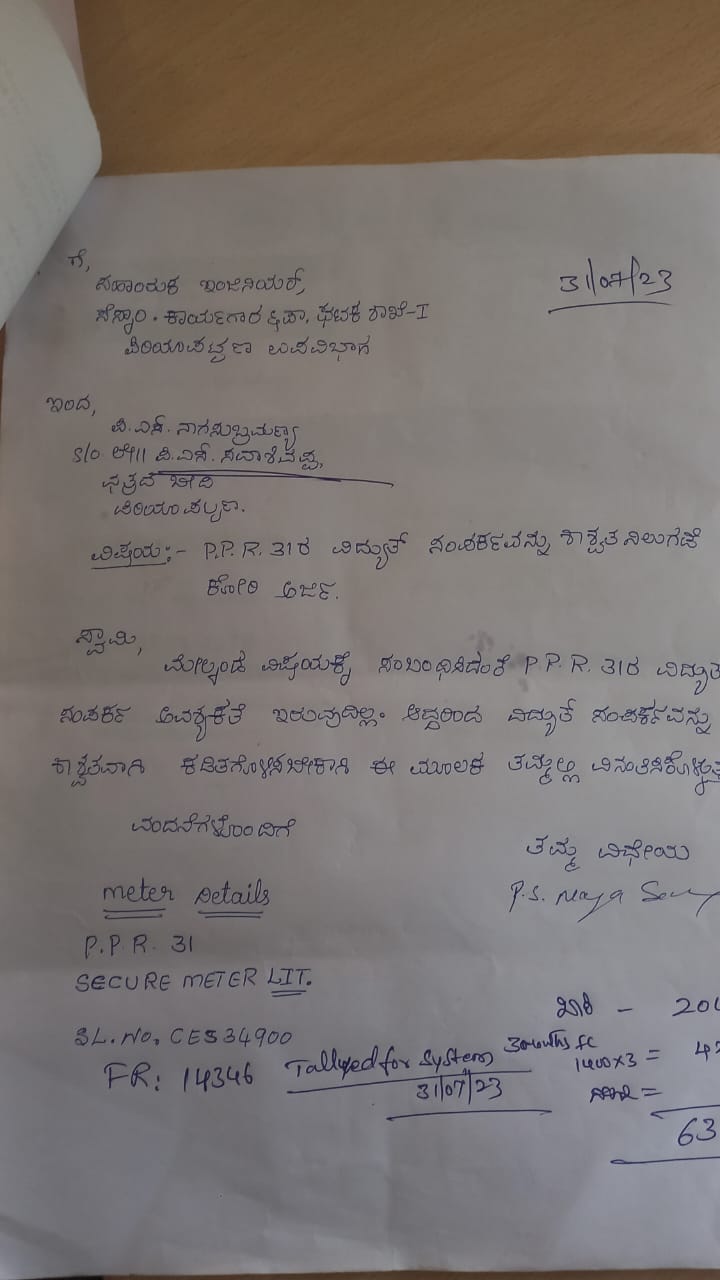 ಗೆ,
31/07/23
ಸಹಾಯಕ ಇಂಜಿನಿಯರ್,
ಸೆಸ್ಕಾಂ. ಕಾರ್ಯಗಾರ &ಪಾ, ಘಟಕ ಶಾಖೆ-I
ಪಿರಿಯಾಪಟ್ಟಣ ಉಪವಿಭಾಗ
ಇಂದ,
ಪಿ.ಎಸ್. ನಾಗಸುಬ್ರಮಣ್ಯ
S/o ಲೇ|| ಪಿ.ಎಸ್. ಸದಾಶಿವಪ್ಪ,
ಛತ್ರದ ಬೀದಿ
ಪಿರಿಯಾಪಟ್ಟಣ.
ವಿಷಯ:- P.P.R. 31ರ ವಿದ್ಯುತ್ ಸಂಪರ್ಕವನ್ನು ಶಾಶ್ವತ ನಿಲುಗಡೆ
ಕೋರಿ ಅರ್ಜಿ.
ಸ್ವಾಮಿ,
ಮೇಲ್ಕಂಡ ವಿಷಯಕ್ಕೆ ಸಂಬಂಧಿಸಿದಂತೆ P.P.R. 31ರ ವಿದ್ಯುತ್
ಸಂಪರ್ಕ ಅವಶ್ಯಕತೆ ಇರುವುದಿಲ್ಲ. ಆದ್ದರಿಂದ ವಿದ್ಯುತ್ ಸಂಪರ್ಕವನ್ನು
ಶಾಶ್ವತವಾಗಿ ಕಡಿತಗೊಳಿಸಬೇಕಾಗಿ ಈ ಮೂಲಕ ತಮ್ಮಲ್ಲಿ
ವಂದನೆಗಳೊಂದಿಗೆ
ತಮ್ಮ ವಿಧೇಯ
P.S. Naga
meter Details
P.P.R. 31
SECURE METER LIT.
SL. NO. CES34900
FR: 14346 Tallyed for System
31/07/23
ಬಾಕಿ - 
3 months fc
1400x3 =
63